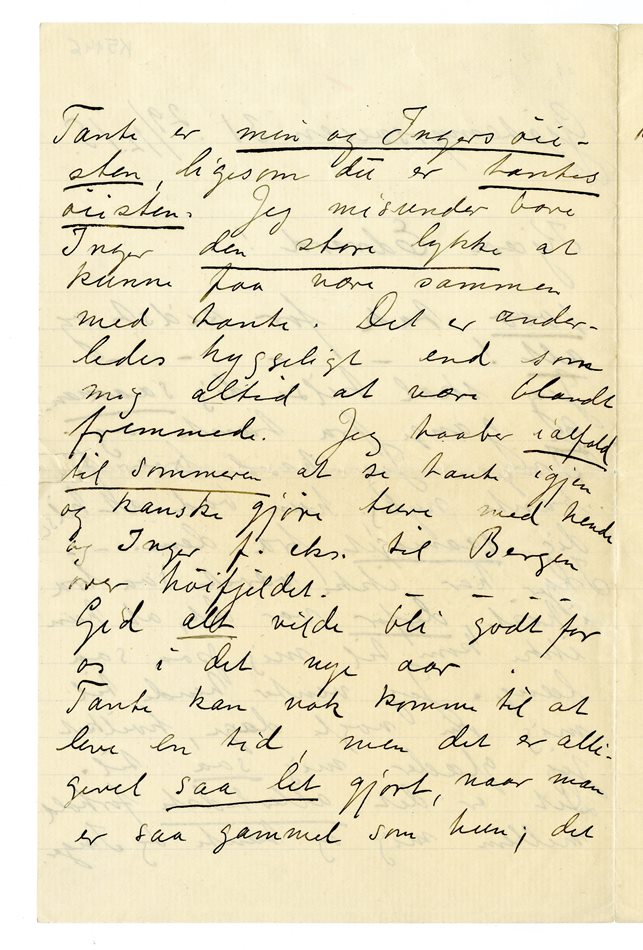 Tante er min og Ingers øie-
sten, ligesom du er tantes
øiesten. Jeg misunder bare
Inger den store lykke at
kunne faa være sammen
med tante. Det er ander-
ledes hyggeligt end som
mig altid at være blandt
fremmede. Jeg haaber ialfald
til sommeren at se tante igjen
og kanske gjøre ture med hende
og Inger f. eks. til Bergen
over høifjeldet. – – – –
Gid alt vilde bli godt for
os i det nye aar.
Tante kan nok komme til at
leve en tid, men det er alli-
gevel saa let gjort, naar man
er saa gammel som hun; det